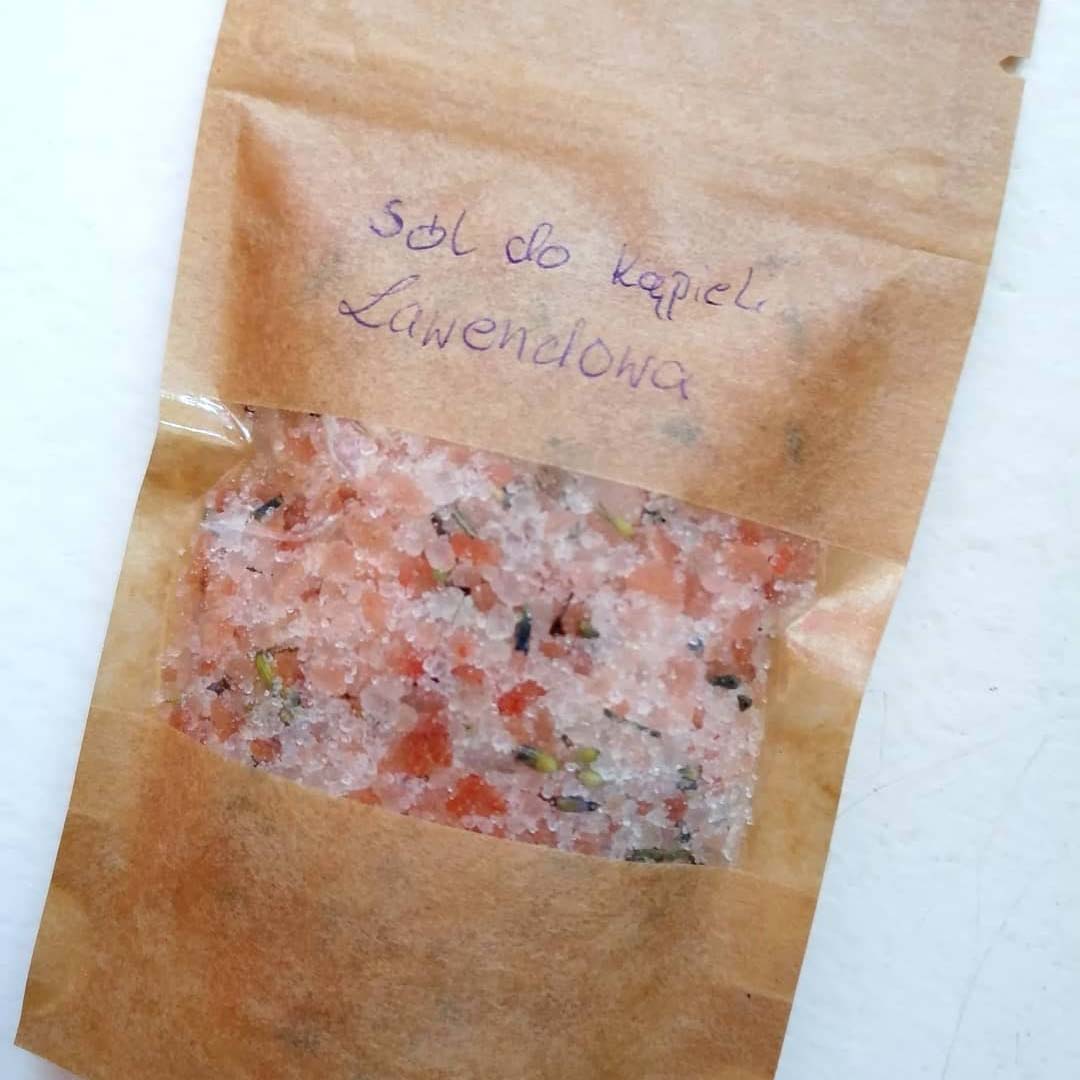 Sól do kąpieli
Lawendowa